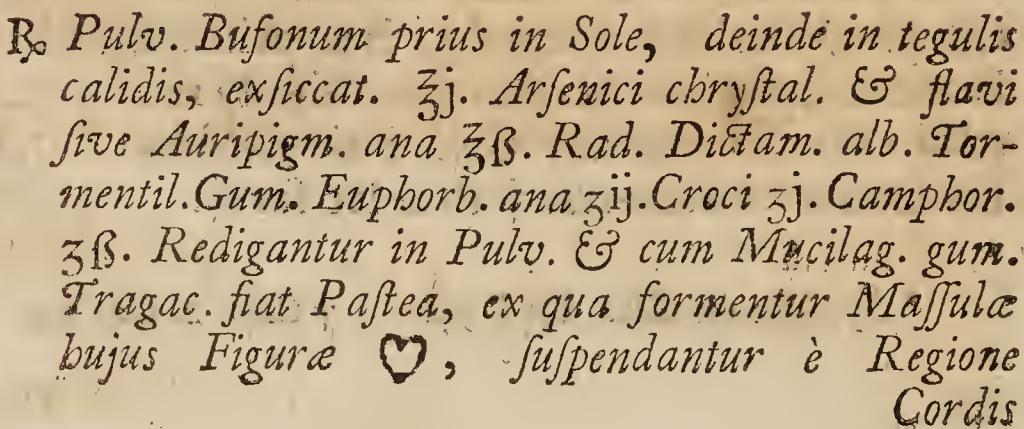 ℞ Pulv. Bufonum prius in Sole, deinde in tegulis
calidis, exſiccat. ℥j. Arſenici chryſtal. & flavi
ſive Auripigm. ana ℥ß. Rad. Dictam. alb. Tor-
mentil. Gum. Euphorb. ana ʒij. Croci ʒj. Camphor.
ʒß. Redigantur in Pulv. & cum Mucilag. gum.
Tragac. fiat Paſtea, ex qua formentur Maſſulæ
hujus Figuræ ♡, ſuſpendantur è Regione
Cordis